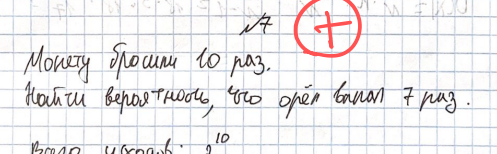 №7
Монету бросили 10 раз.
Найти вероятность, что орёл выпал 7 раз.
Всего исходов: 2¹⁰